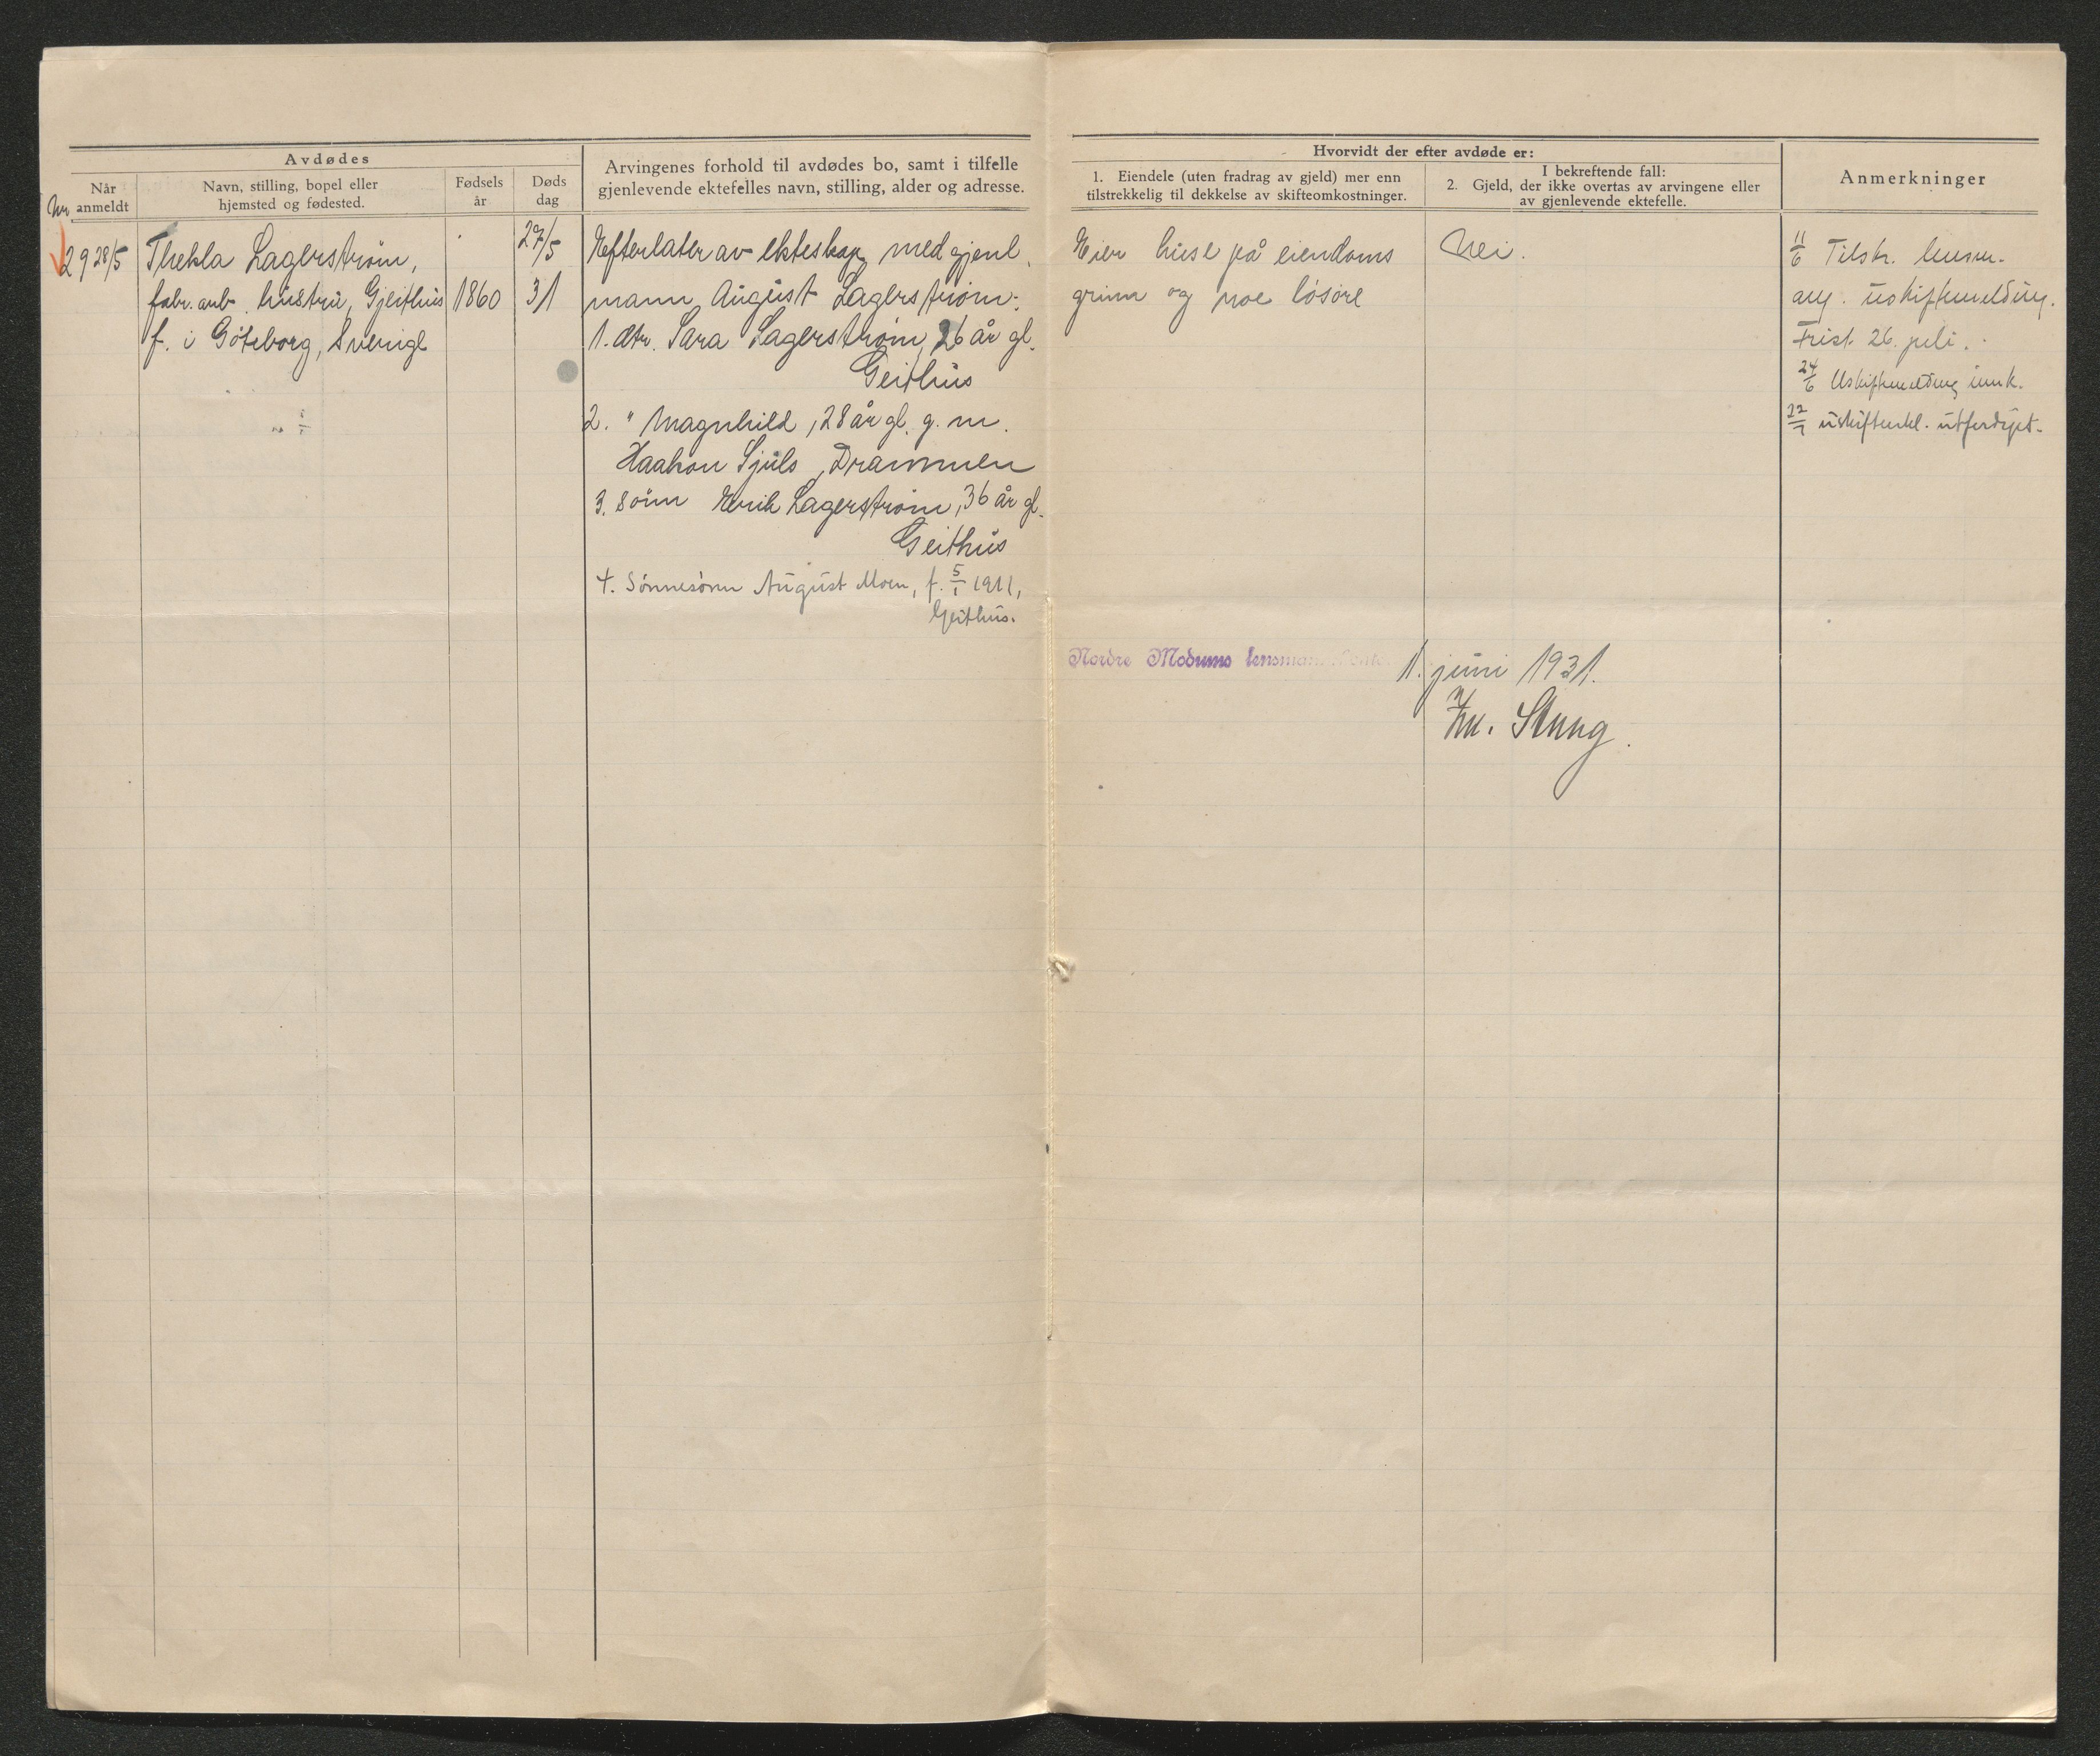 Avdødes
Når anmeldt
Nr.
Navn, stilling, bopel eller
hjemsted og fødested.
Fødsels
år
Døds
dag
Arvingenes forhold til avdødes bo, samt i tilfelle
gjenlevende ektefelles navn, stilling, alder og adresse.
Hvorvidt der efter avdøde er:
1. Eiendele (uten fradrag av gjeld) mer enn
tilstrekkelig til dekkelse av skifteomkostninger.
I bekreftende fall:
2. Gjeld, der ikke overtas av arvingene eller
av gjenlevende ektefelle.
Anmerkninger
29 28/5
Thekla Lagerstrøm,
fabr. arb. hustru, Gjeithus
f. i Göteborg, Sverige
1860
27/5
31
Efterlater av ekteskap med gjenl.
mann August Lagerstrøm:
1. dtr. Sara Lagerstrøm, 26 år gl.
Geithus
2. " Magnhild, 28 år gl. g. m.
Haakon Sjuls, Drammen
3. sønn Erik Lagerstrøm, 36 år gl.
Geithus
4. Sønnesønn August Moen, f. 5/1 1911,
Geithus.
Eier huse på eiendoms
grunn og noe løsøre
Nei.
11/6 Tilskr. lensm.
ang. uskiftemelding.
Frist 26. juli.
24/6 Uskiftemelding innk.
22/7 uskifteerkl. utferdiget.
Nordre Modums lensmannskontor
1. juni 1931.